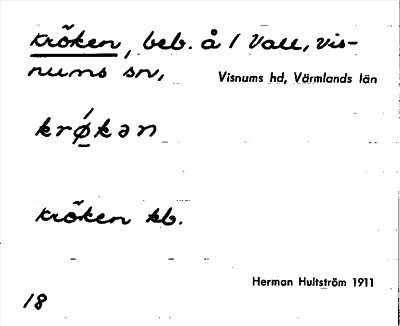 Krõken, beb. å 1 Vall, Vis-
nums sn,
Visnums hd, Värmlands län
krǿ̠kən
Krõken kb.
Herman Hultström 1911
18